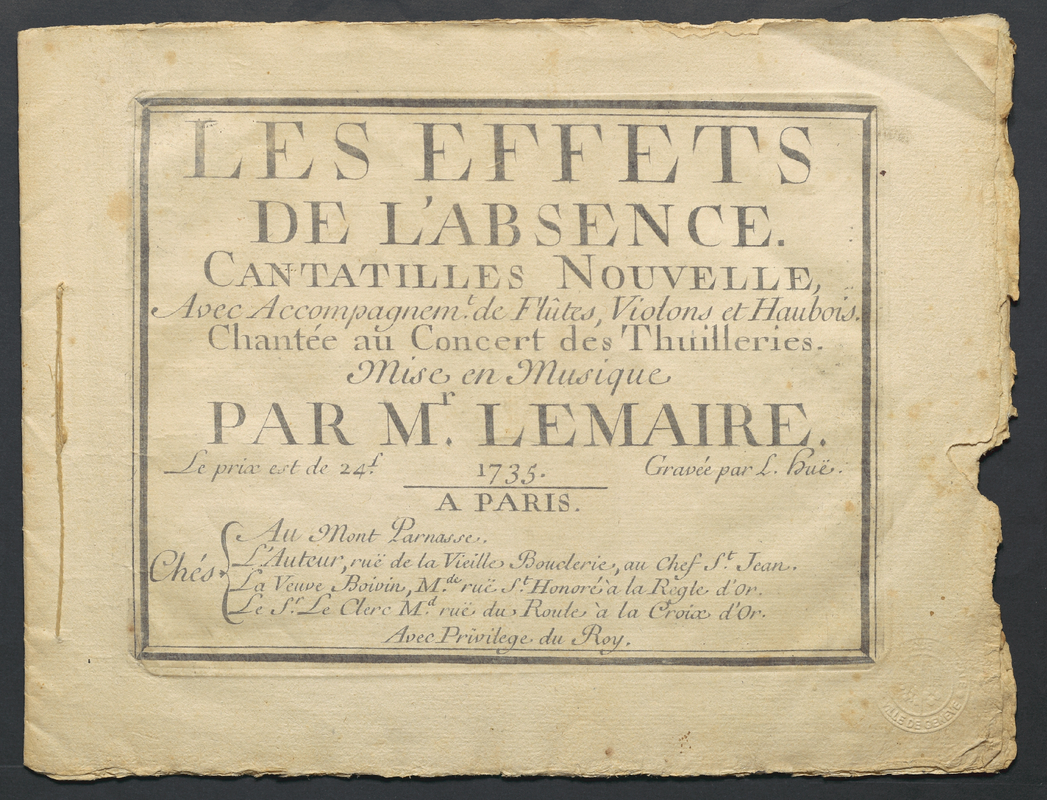 LES EFFETS
DE L'ABSENCE.
CANTATILLES NOUVELLE,
Avec Accompagnem.t de Flûtes, Violons et Haubois.
Chantée au Concert des Thuilleries.
Mise en Musique
PAR Mr. LEMAIRE.
Le prix est de 24f. 1735. Gravée par L. Huë.
A PARIS.
Au Mont Parnasse.
Chés L'Auteur, ruë de la Vieille Bouclerie, au Chef St. Jean.
La Veuve Boivin, M.de ruë St. Honoré à la Regle d'Or.
Le Sr. Le Clerc M.d ruë du Roule à la Croix d'Or.
Avec Privilege du Roy.
VILLE DE GENEVE